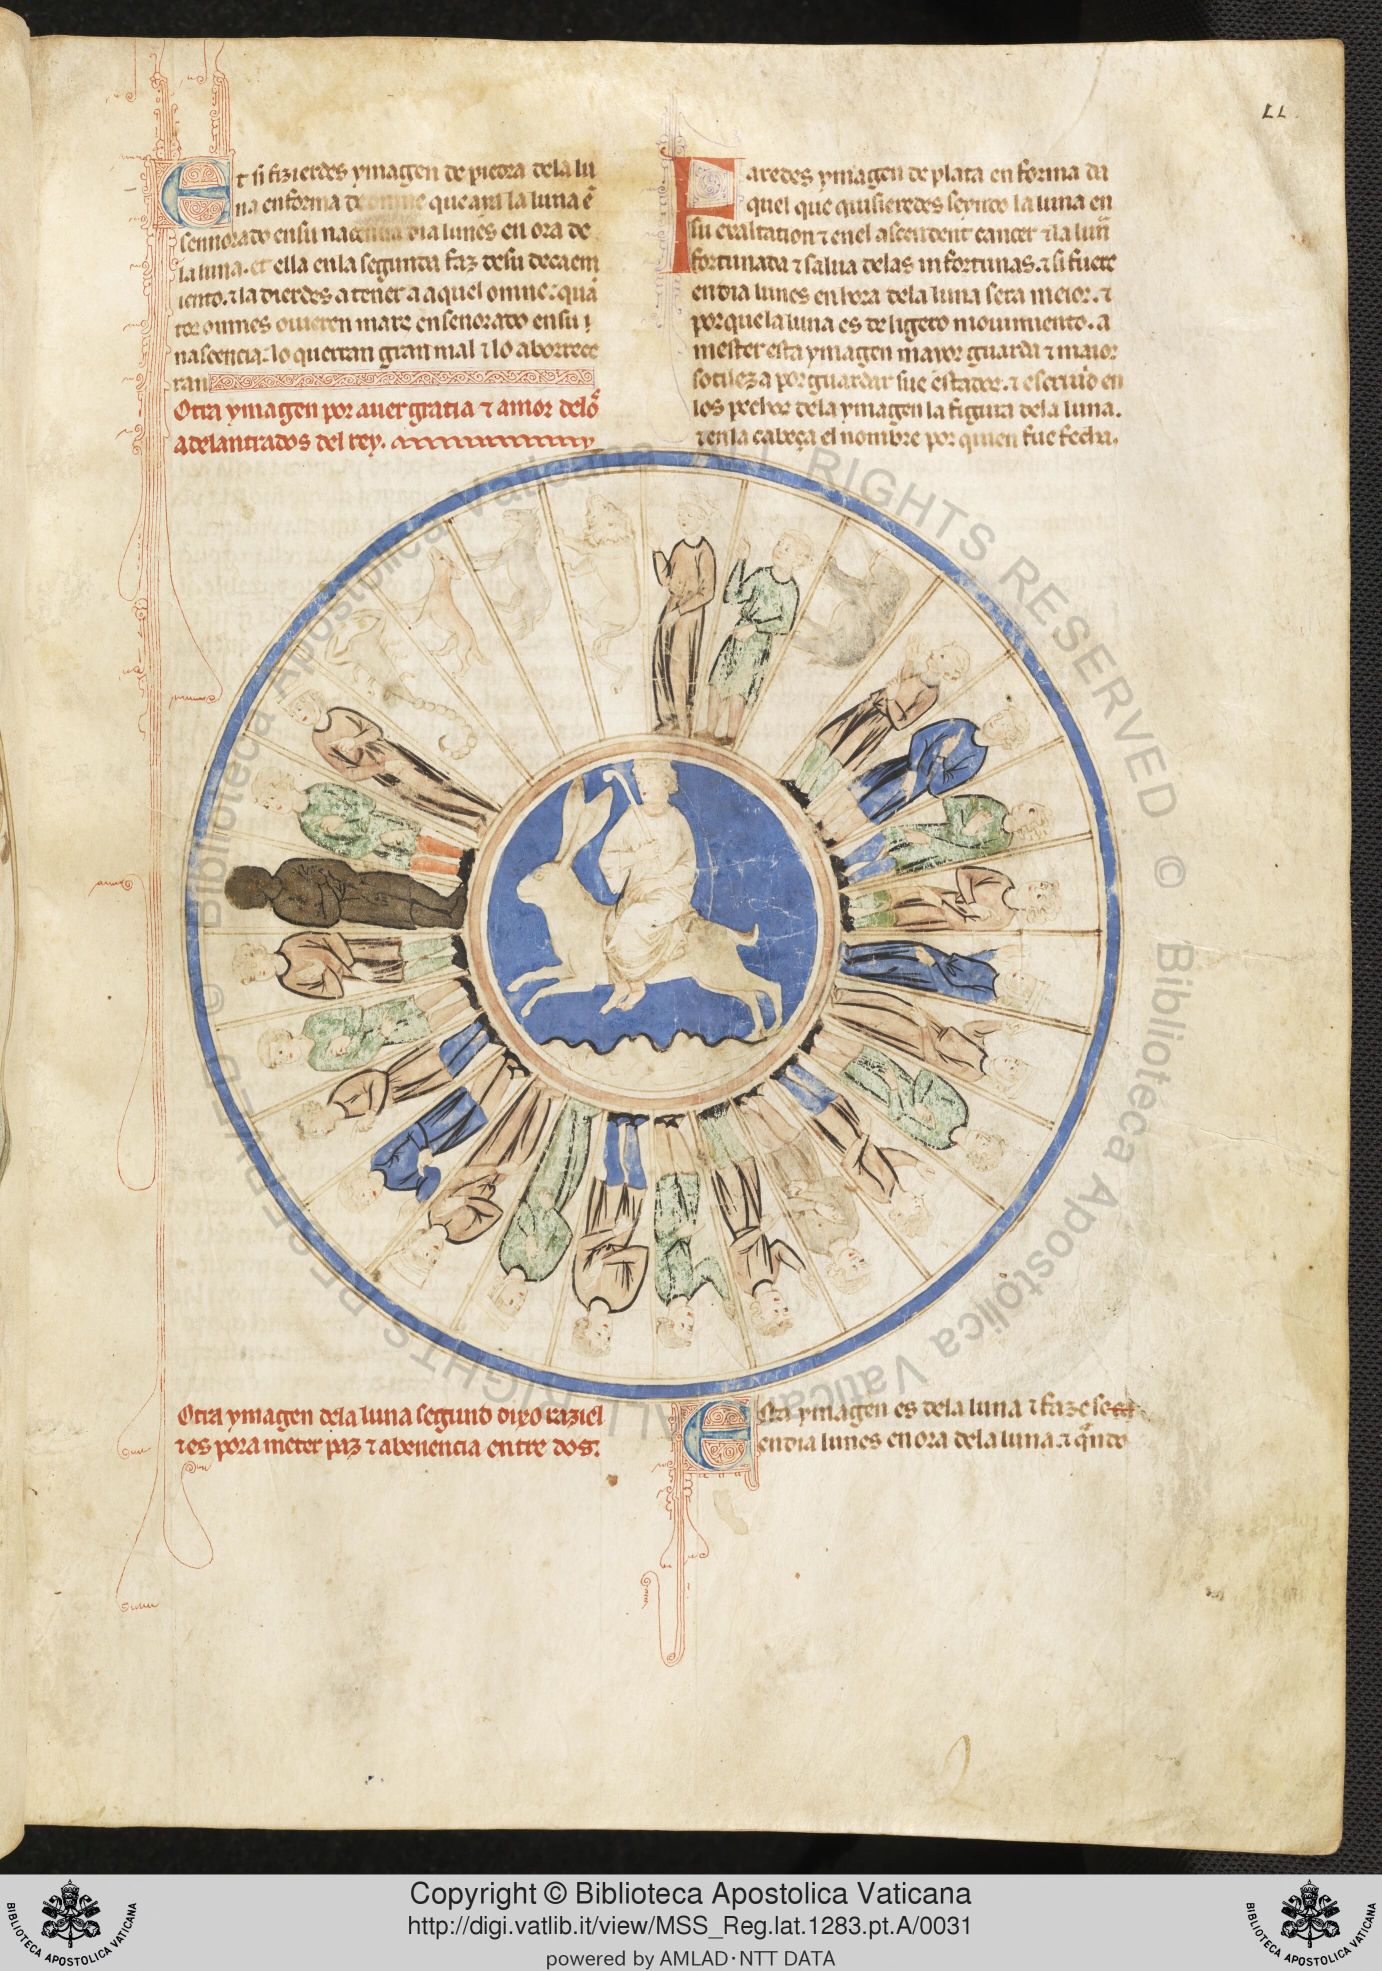 Et si fizierdes ymagen de piedra dela lu
na en forma de omne que aya la luna ẽ
sennorado en su nacencia dia lunes en ora de
la luna. et ella en la segunda faz de su decaem
iento. ⁊ la dierdes a tener a aquel omne: quã
tos omnes ouieren mars ensenorado en su
nascencia: lo querran gran mal ⁊ lo aborrece
ran
Otra ymagen por auer gratia ⁊ amor delõ
adelantrados del rey.
Faredes ymagen de plata en forma da
quel que quisieredes seyendo la luna en
su exaltation ⁊ en el ascendent cancer ⁊ la lun̄
fortunada ⁊ salua delas infortunas. ⁊ si fuere
en dia lunes en hora dela luna sera meior. ⁊
por que la luna es de ligero mouimiento. a
mester esta ymagen mayor guarda ⁊ maior
sotileza por guardar sue estador. ⁊ escriuid en
los pechos dela ymagen la figura dela luna.
⁊ en la cabeça el nombre por quien fue fecha.
LL
Otra ymagen dela luna segund dixo raziel
⁊ es pora meter paz ⁊ abenencia entre dos:
Esta ymagen es dela luna ⁊ faze se
en dia lunes en ora dela luna. ⁊ quãdo
© Biblioteca Apostolica Vaticana ALL RIGHTS RESERVED © Biblioteca Apostolica Vaticana ALL RIGHTS RESERVED
BIBLIOTECA APOSTOLICA VATICANA
Copyright © Biblioteca Apostolica Vaticana
http://digi.vatlib.it/view/MSS_Reg.lat.1283.pt.A/0031
powered by AMLAD·NTT DATA
BIBLIOTECA APOSTOLICA VATICANA